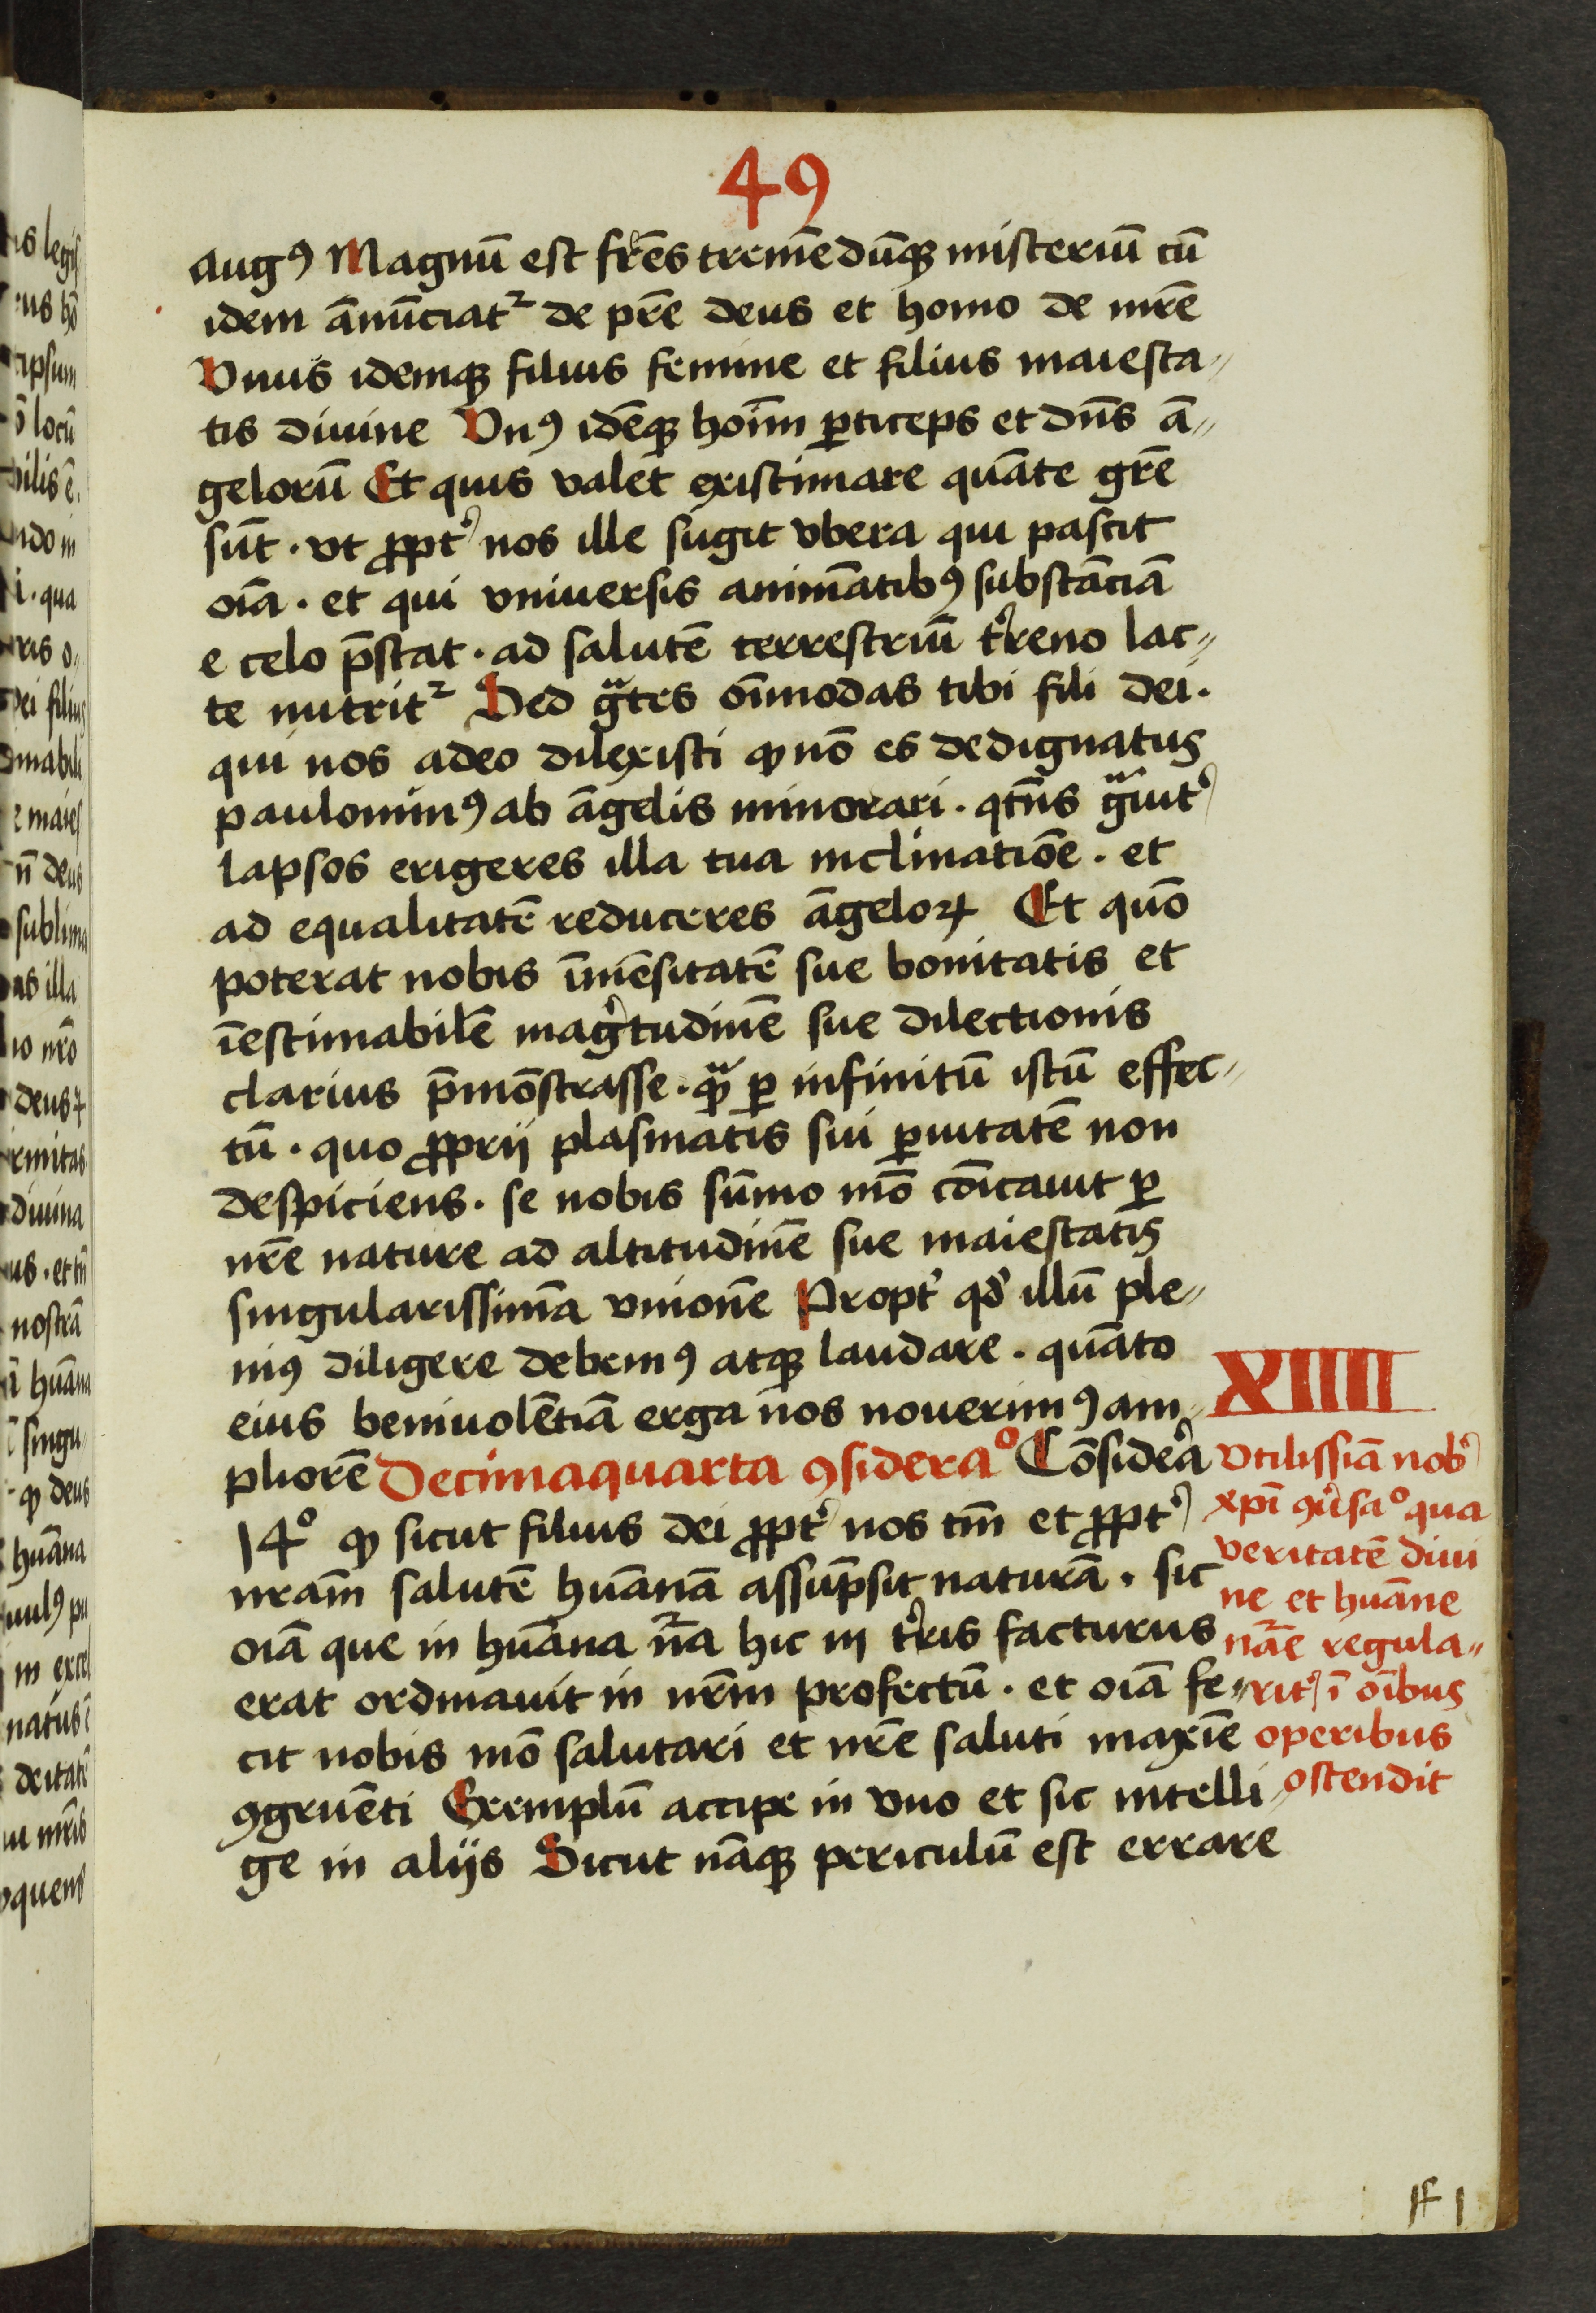 49
Augꝰ Magnū est fr̄es tremēdūqꝫ misteriū cū
idem ānūciatᷣ de pr̄e deus et homo de mr̄e
Vnus idemqꝫ filius femine et filius maiesta⸗
tis diuine Vnꝰ idēqꝫ hoīm ꝑticeps et dn̄s ā⸗
gelorū Et quis valet existimare quāte gr̄e
sūt · vt ꝓpt̉ nos ille sugit vbera qui pascit
oīa · et qui vniuersis animātibꝰ substāciā
e celo p̄stat · ad salutē terrestriū t̉reno lac⸗
te nutritᷣ Sed gᷓtes oīmodas tibi fili dei ·
qui nos adeo dilexisti ꝙ nō es dedignatus
paulominꝰ ab āgelis minorari · qtn̄s gᷓuit̉
lapsos erigeres illa tua inclinatiōe · et
ad equalitatē reduceres āgeloꝝ Et quō
poterat nobis īmēsitatē sue bonitatis et
īestimabilē mag̉tudinē sue dilectionis
clarius p̄mōstrasse · qᷓꝫ ꝑ infinitū istū effec⸗
tū · quo ꝓprij plasmatis sui ꝑuitatē non
despiciens · se nobis sūmo mō cōicauit ꝑ
nr̄e nature ad altitudinē sue maiestatis
singularissimā vnionē Propt̉ qd̉ illū ple⸗
niꝰ diligere debemꝰ atqꝫ laudare · quāto
eius beniuolētiā erga nos nouerimꝰ am⸗
pliorē Decimaquarta ꝯsideraº Cōsidera
14º ꝙ sicut filius dei ꝓpt̉ nos tm̄ et ꝓpt̉
nram̄ salutē huānā assūpsit naturā · sic
oīa que in huāna nᷓa hic in t̉ris facturus
erat ordinauit in nr̄m profectū · et oīa fe⸗
cit nobis mō salutari et nr̄e saluti maxīe
ꝯgruēti Exemplū accipe in vno et sic intelli⸗
ge in alijs Sicut nāqꝫ periculū est errare
XIIII
Vtilissīa nob̉
xp̄i ꝯủsaº qua
veritatē diui
ne et huāne
nāe regula⸗
rit̉ ī oībus
operibus
ostendit